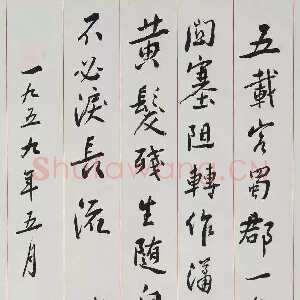 五載客蜀郡一
關塞阻轉作瀟
黄髮殘生随白
不必淚長流
一九五九年五月
Shufawang.CN